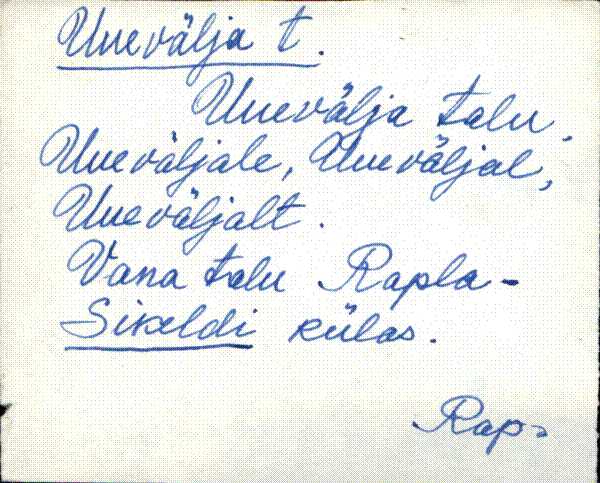 Uuevälja t.
Uuevälja talu.
Uueväljale, Uueväljal,
Uueväljalt.
Vana talu Rapla-
Sikeldi külas.
Rap.